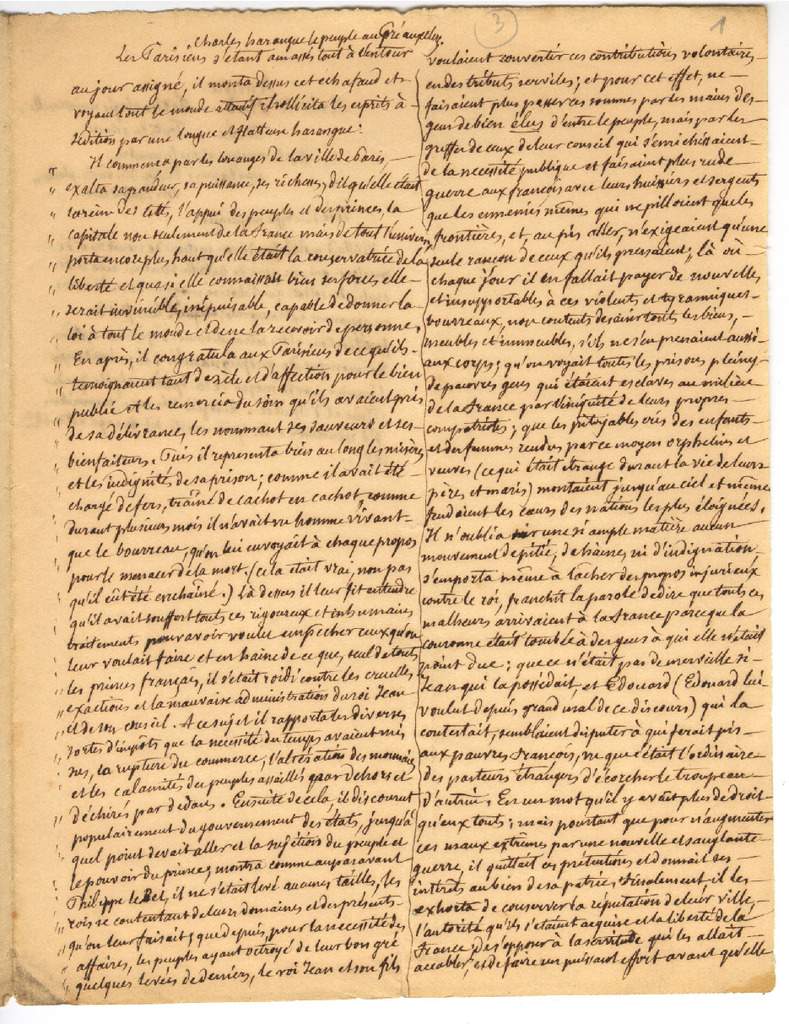 3
1
Charles harangue le peuple au Pré aux clercs
Les Parisiens s'étant amassés tout à l'entour
au jour assigné, il monta dessus cet echafaud et
voyant tout le monde attentif il sollicita les esprits à
sédition par une longue et flatteuse harangue.
Il commença par les louanges de la ville de Paris,
exalta sa grandeur, sa puissance, ses richesses, dit qu'elle était
l'appui des peuples et des princes, la
capitale non seulement de la France mais de tout l'univers
porta encore plus haut qu'elle était la conservatrice de la
liberté et que si elle connaissait bien ses forces elle
serait invincible, inépuisable, capable de donner la
loi à tout le monde et de ne la recevoir de personne.
En après, il congratula aux Parisiens de ce qu'ils
temoignaient tant de zèle et d'affection pour le bien
public et les remercia du soin qu'ils avaient pris
de sa délivrance, les nommant ses sauveurs et ses
bienfaiteurs. Puis il representa bien au long les misères
et les indignités de sa prison; comme il avait été
chargé de fers, traîné de cachot en cachot, comme
durant plusieurs mois il n'avait vu homme vivant
que le bourreau, qu'on lui envoyait à chaque propos
pour le menacer de la mort. (cela était vrai, non pas
qu'il eût été enchaîné.) Là dessus il leur fit entendre
qu'il avait souffert tous ces rigoureux et inhumains
traitements pour avoir voulu empêcher ceux qu'on
leur voulait faire et en haine de ce que, seul de tous
les princes français, il s'était roidi contre les cruelles
exactions et la mauvaise administration du roi Jean
et de son conseil. A ce sujet il rapporta les diverses
sortes d'impôts que la nécessité du temps avaient mis
sus, la rupture du commerce, l'altération des monnaies
et les calamités des peuples assaillis par dehors et
déchirés par dedans. Ensuite de cela, il discourut
populairement du gouvernement des états, jusqu'à
quel point devait aller et la sujétion du peuple et
le pouvoir du prince; montra comme auparavant
Philippe le Bel, il ne s'était levé aucunes tailles, les
rois se contentant de leurs domaines et des présents
qu'on leur faisait; que depuis, pour la nécessité des
affaires, les peuples ayant octroyé de leur bon gré
quelques levées de deniers, le roi Jean et son fils
voulaient convertir ces contributions volontaires
en des tributs serviles; et pour cet effet, ne
faisaient plus passer ces sommes par les mains des
gens de bien élus d'entre le peuple, mais par les
griffes de ceux de leur conseil qui s'enrichissaient
de la nécessité publique et faisaient plus rude
guerre aux françois avec leurs huissiers et sergents
que les ennemis mêmes qui ne pilloient que les
frontières, et, au pis aller, n'exigeaient qu'une
seule rançon de ceux qu'ils prenaient; là où
chaque jour il en fallait payer de nouvelles
et insupportables à ces violents et tyranniques
bourreaux, non contents de saisir tous les biens,
meubles et immeubles, s'ils ne s'en prenaient aussi
aux corps; qu'on voyait toutes les prisons pleines
de pauvres gens qui étaient esclaves au milieu
de la France par l'iniquité de leurs propres
compatriotes; que les pitoyables cris des enfants
et des femmes rendus par ce moyen orphelins et
veuves (ce qui était étrange durant la vie de leurs
pères et maris) montaient jusqu'au ciel et même
fendaient les cœurs des nations les plus éloignées.
Il n'oublia sur une si ample matière aucun
mouvement de pitié, de haine, ni d'indignation
s'emporta même à lâcher des propos injurieux
contre le roi, franchit la parole de dire que tous ces
malheurs arrivaient à la France parce que la
couronne était tombée à des gens à qui elle n'était
point due; que ce n'était pas de merveille si
Jean qui la possédait et Edouard (Edouard lui
voulut depuis grand mal de ce discours) qui la
contestait, semblaient disputer à qui ferait pis
aux pauvres François, vu que c'était l'ordinaire
des pasteurs étrangers d'écorcher le troupeau
d'autrui. En un mot qu'il y avait plus de droit
qu'eux tous; mais pourtant que pour n'augmenter
ces maux extrêmes par une nouvelle et sanglante
guerre, il quittait ces prétentions et donnait ses
intérêts au bien de sa patrie. Finalement, il les
exhorta de conserver la réputation de leur ville,
l'autorité qu'ils s'étaient acquise et la liberté de la
France; de s'opposer à la servitude qui les allait
accabler, et de faire un puissant effort avant qu'elle